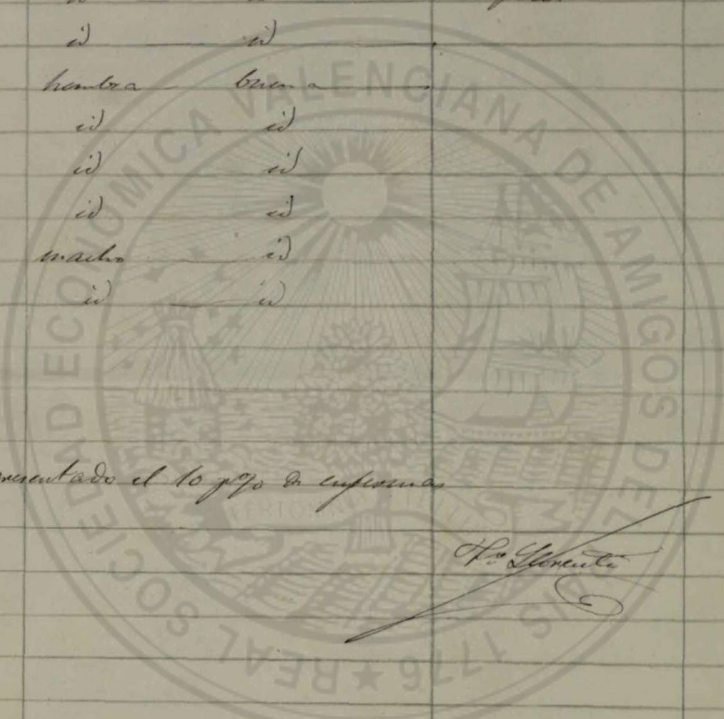 id id
hembra buena
id id
id id
id id
macho id
id id
presentado el 10 p% de enfermas
Llorente
REAL SOCIEDAD ECONÓMICA VALENCIANA DE AMIGOS DEL PAÍS 1776